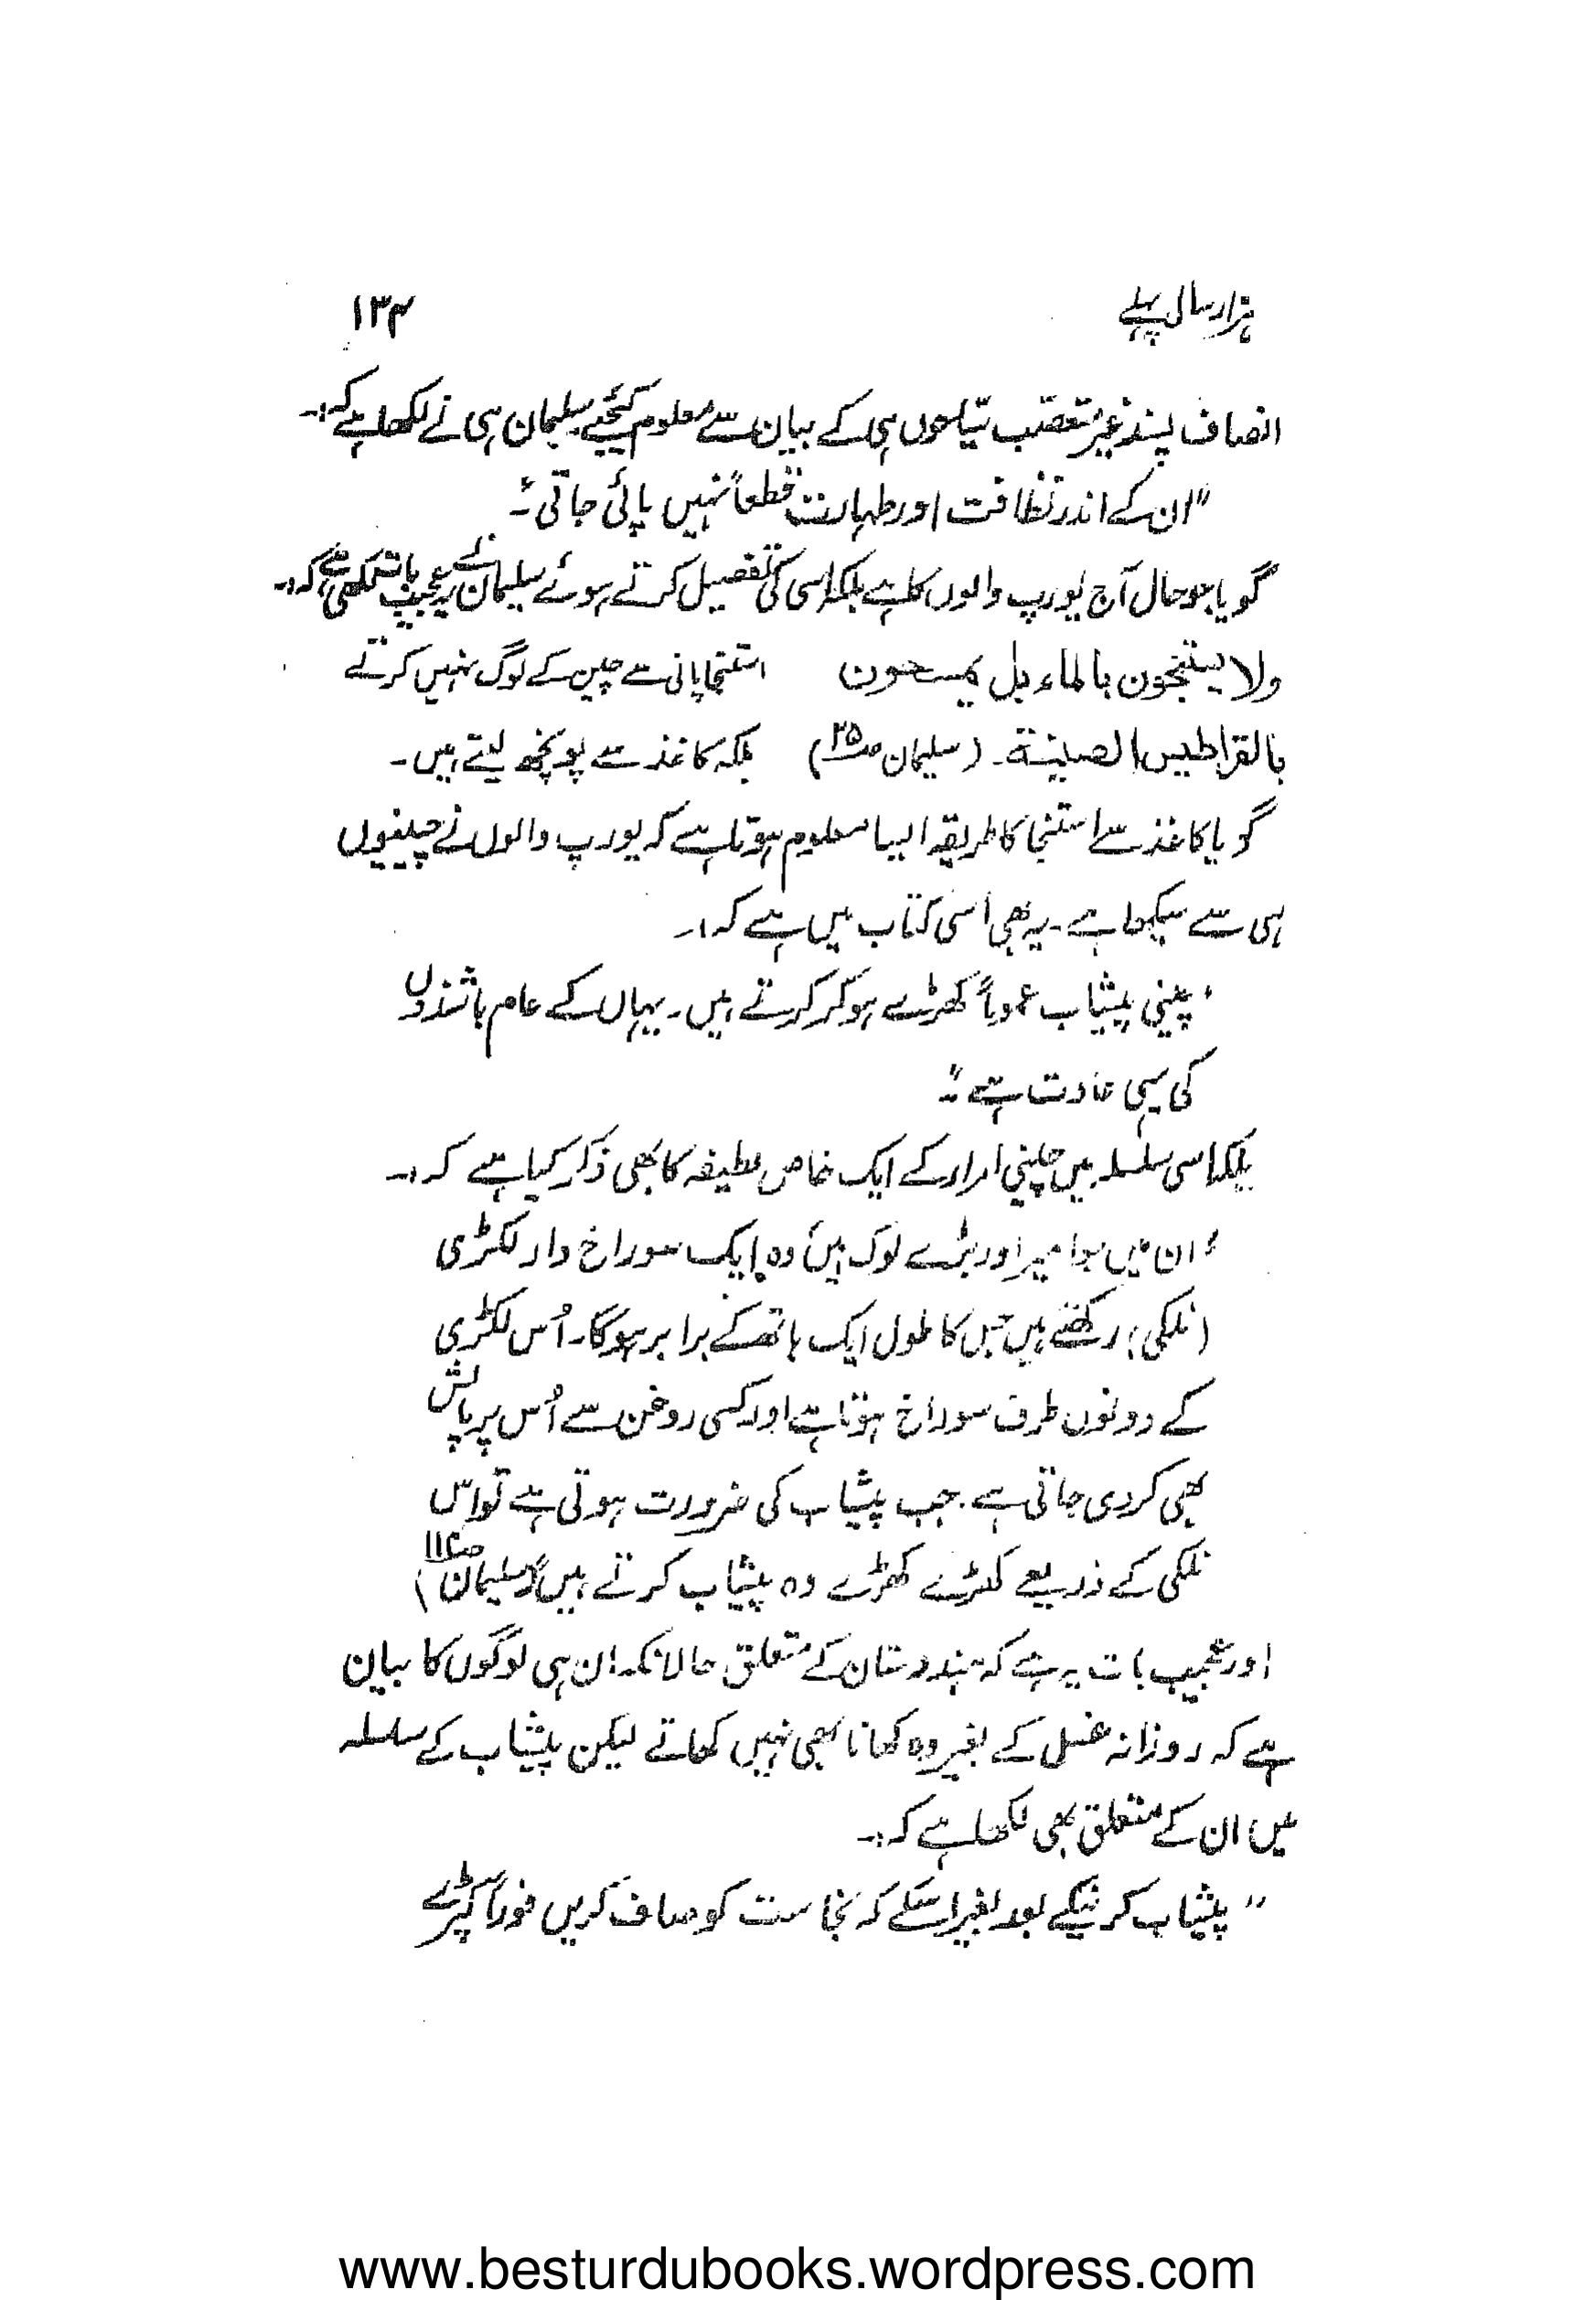 ہزار سال پہلے
۱۳۴
انصاف پسند غیر متعصب سیاحوں ہی کے بیان سے معلوم کیجئے سلیمان ہی نے لکھا ہے کہ:۔
"ان کے اندر نظافت اور طہارت قطعاً نہیں پائی جاتی"۔
گویا جو حال آج یورپ والوں کا ہے بلکہ اسی کی تفصیل کرتے ہوئے سلیمان نے یہ عجیب بات لکھی ہے کہ:۔
ولا یستنجون بالماء بل یمسحون
استنجا پانی سے چین کے لوگ نہیں کرتے
بالقراطیس الصینیة۔ (سلیمان ص۲۵)
بلکہ کاغذ سے پونچھ لیتے ہیں۔
گویا کاغذ سے استنجا کا طریقہ ایسا معلوم ہوتا ہے کہ یورپ والوں نے چینیوں
ہی سے سیکھا ہے۔ یہ بھی اسی کتاب میں ہے کہ:۔
"چینی پیشاب عموماً کھڑے ہو کر کرتے ہیں۔ یہاں کے عام باشندوں
کی یہی عادت ہے"۔
بلکہ اسی سلسلہ میں چینی امراء کے ایک خاص لطیفہ کا بھی ذکر کیا ہے کہ:۔
"ان میں جو امیر اور بڑے لوگ ہیں وہ ایک سوراخ دار لکڑی
(نلکی) رکھتے ہیں جس کا طول ایک ہاتھ کے برابر ہوگا۔ اُس لکڑی
کے دونوں طرف سوراخ ہوتا ہے اور کسی روغن سے اُس پر پالش
بھی کردی جاتی ہے۔ جب پیشاب کی ضرورت ہوتی ہے تو اس
نلکی کے ذریعے کھڑے کھڑے وہ پیشاب کرتے ہیں" (سلیمان ص۱۱۷)
اور عجیب بات یہ ہے کہ ہندوستان کے متعلق حالانکہ ان ہی لوگوں کا بیان
ہے کہ روزانہ غسل کے بغیر وہ کھانا بھی نہیں کھاتے لیکن پیشاب کے سلسلہ
میں ان کے متعلق بھی لکھا ہے کہ:۔
"پیشاب کرنیکے بعد بغیر اسکے کہ نجاست کو صاف کریں فوراً کپڑے
www.besturdubooks.wordpress.com